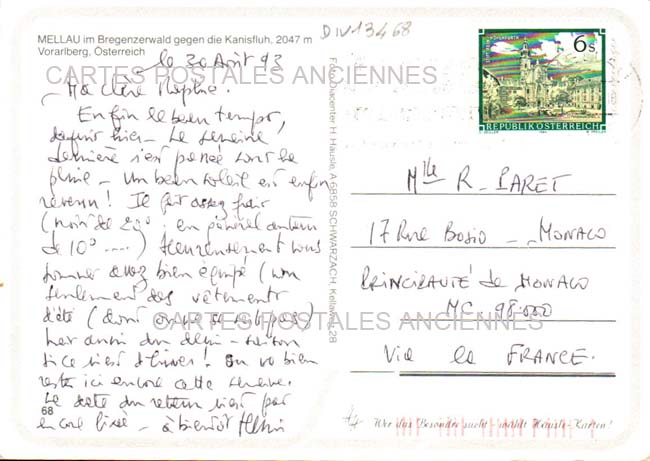 MELLAU im Bregenzerwald gegen die Kanisfluh, 2047 m
Vorarlberg, Österreich
DIV13468
le 30 Août 93
CARTES POSTALES ANCIENNES
Ma chère
Enfin le beau temps,
depuis hier - La semaine
dernière s'est passée sous la
pluie - Un beau soleil est enfin
revenu ! Il fait assez frais
(moins de 20° ; en général autour
de 10° ....) Heureusement nous
sommes assez bien équipé (non
seulement des vêtements
d'été (dont on ne se sert pas)
mais aussi du demi-saison
si ce n'est d'hiver ! On va bien
rester ici encore cette semaine.
La date du retour n'est pas
encore fixée - à bientôt
68
Foto Diacenter H. Häusle, A 6858 SCHWARZACH, Kellaweg 28
6 S
REPUBLIK ÖSTERREICH
Mlle R. PARET
17 Rue Bosio - MONACO
PRINCIPAUTÉ de MONACO
MC 98.000
CARTES POSTALES ANCIENNES
Via la FRANCE.
Wer das Besondre sucht - wählt Häusle-Karten!